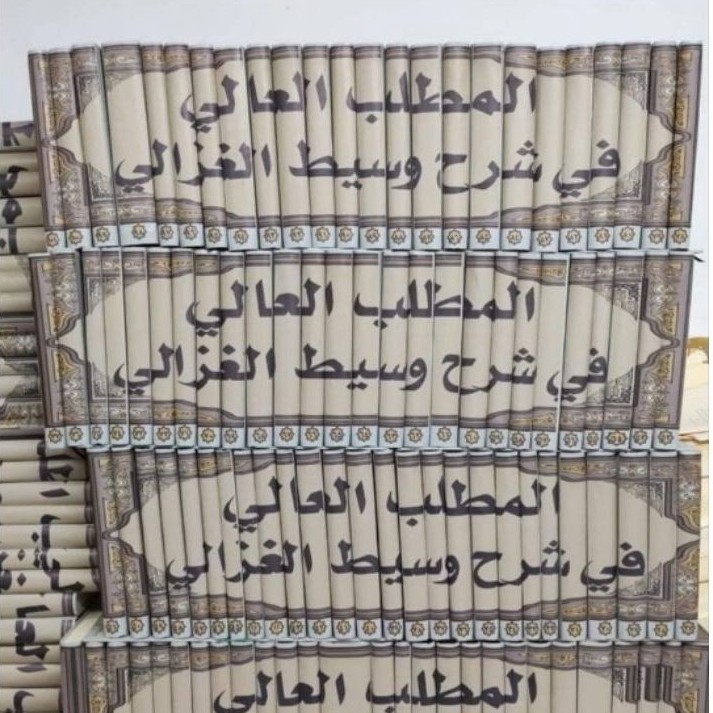 المطلب العالي
في شرح وسيط الغزالي
المطلب العالي
في شرح وسيط الغزالي
المطلب العالي
في شرح وسيط الغزالي
المطلب العالي